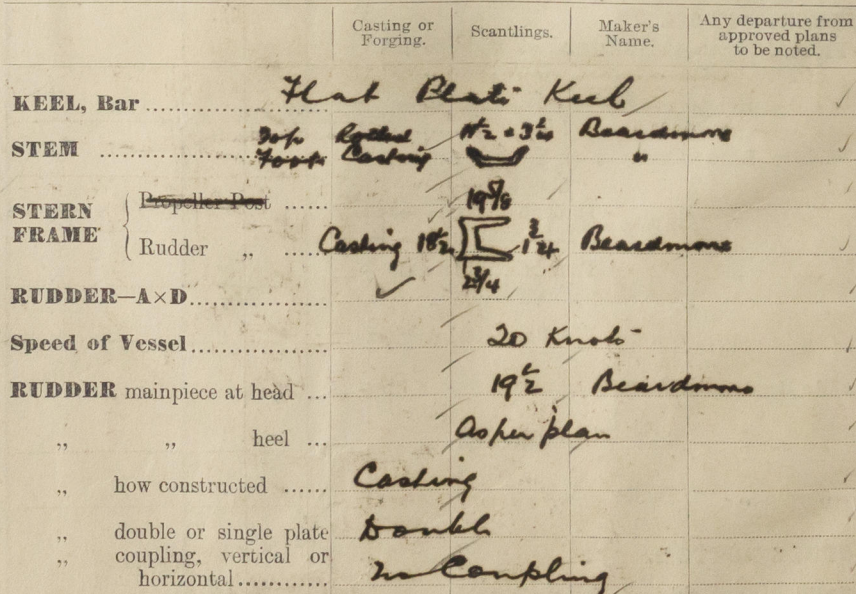 Casting or Forging. Scantlings. Maker's Name. Any departure from approved plans to be noted.
KEEL, Bar .......... Flat Plate Keel
STEM .......... Top Rolled Beardmore
Foot Casting "
STERN FRAME { Propeller Post ...... 19 5/8
Rudder " ..... Casting 18½ 1¾ Beardmore
2¾
RUDDER—A×D ..........
Speed of Vessel .......... 20 Knots
RUDDER mainpiece at head ... 19½ Beardmore
" " heel ... As per plan
" how constructed ...... Casting
" double or single plate Double
" coupling, vertical or
horizontal .......... no Coupling